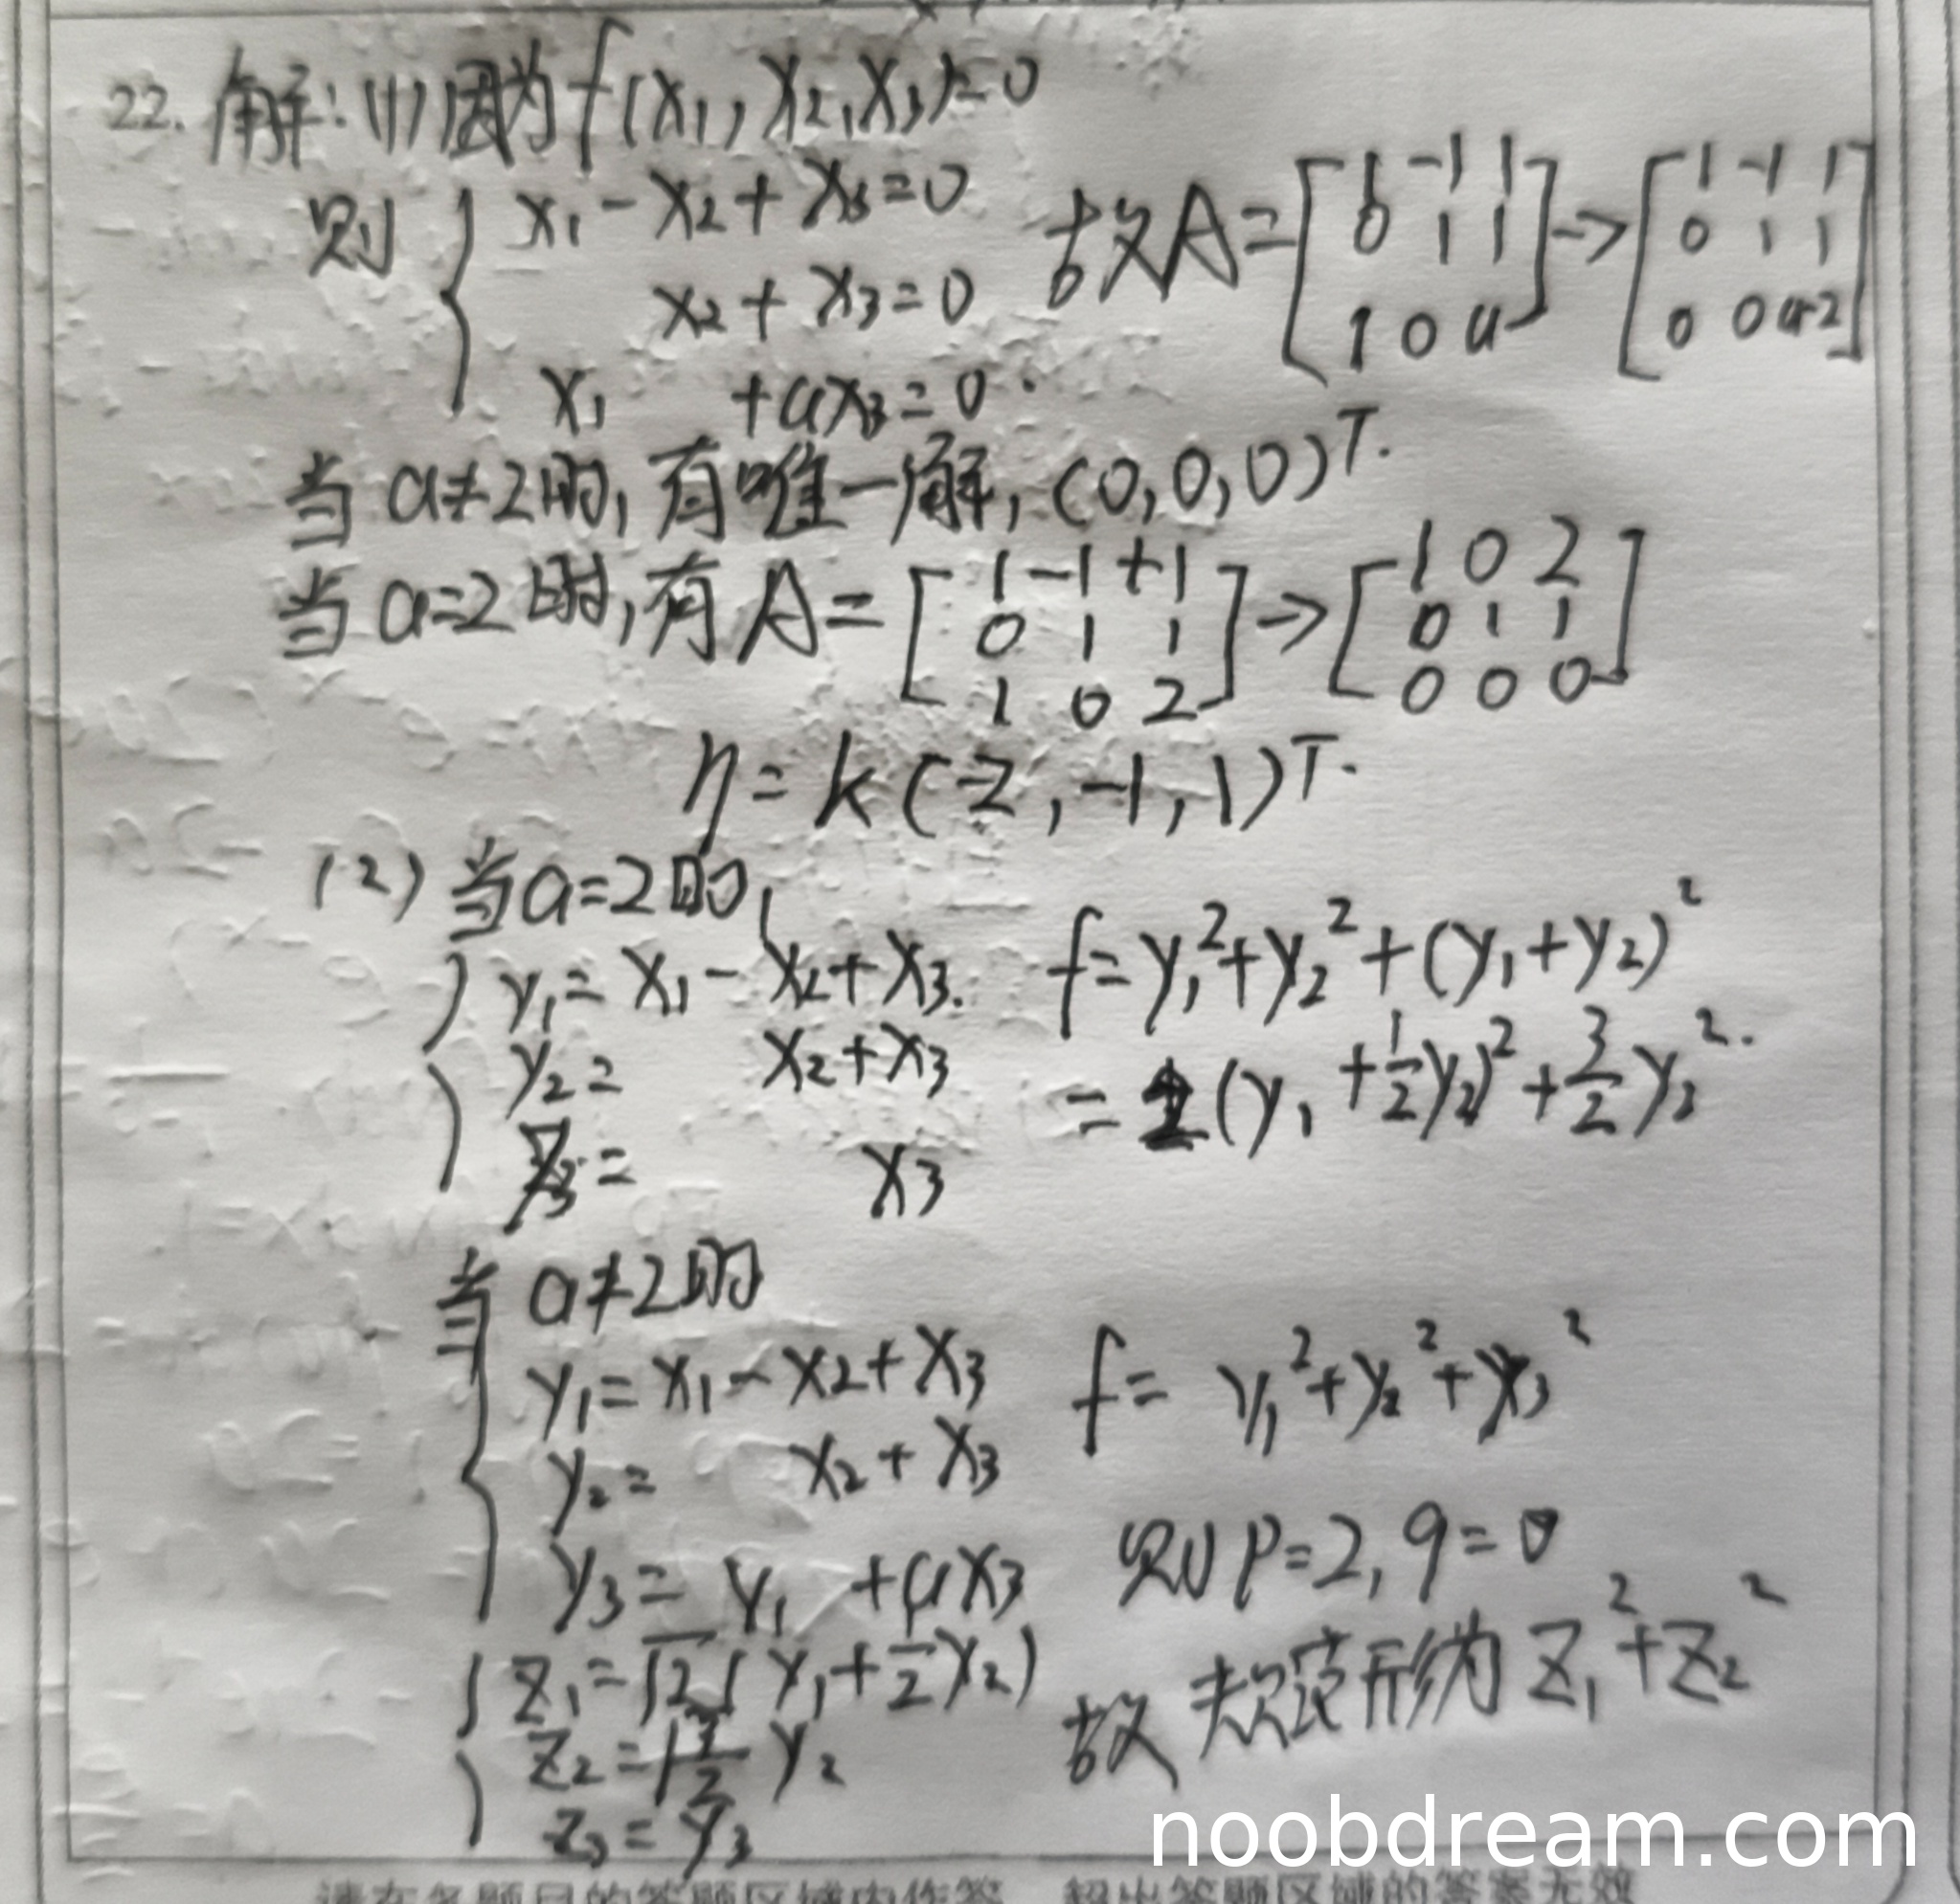 22. 解: (1) 因为 f(x₁, x₂, x₃)=0
则 { x₁ - x₂ + x₃ = 0
x₂ + x₃ = 0
x₁ + ax₃ = 0.
故A = [1 -1 1; 0 1 1; 1 0 a] → [1 -1 1; 0 1 1; 0 0 a-2]
当 a≠2时, 有唯一解, (0, 0, 0)ᵀ.
当 a=2时, 有 A = [1 -1 +1; 0 1 1; 1 0 2] → [1 0 2; 0 1 1; 0 0 0]
η = k(-2, -1, 1)ᵀ.
(2) 当a=2时,
{ y₁ = x₁ - x₂ + x₃.
y₂ = x₂ + x₃
y₃ = x₃
f = y₁² + y₂² + (y₁ + y₂)²
= 2(y₁ + 1/2 y₂)² + 3/2 y₂².
当 a≠2时
{ y₁ = x₁ - x₂ + x₃
y₂ = x₂ + x₃
y₃ = y₁ + ax₃
f = y₁² + y₂² + y₃²
则 p=2, q=0
{ z₁ = √2 (y₁ + 1/2 y₂)
z₂ = √3/2 y₂
z₃ = y₃
故 规范形为 z₁² + z₂²
noobdream.com
请在各题目的答题区域内作答, 超出答题区域的答案无效